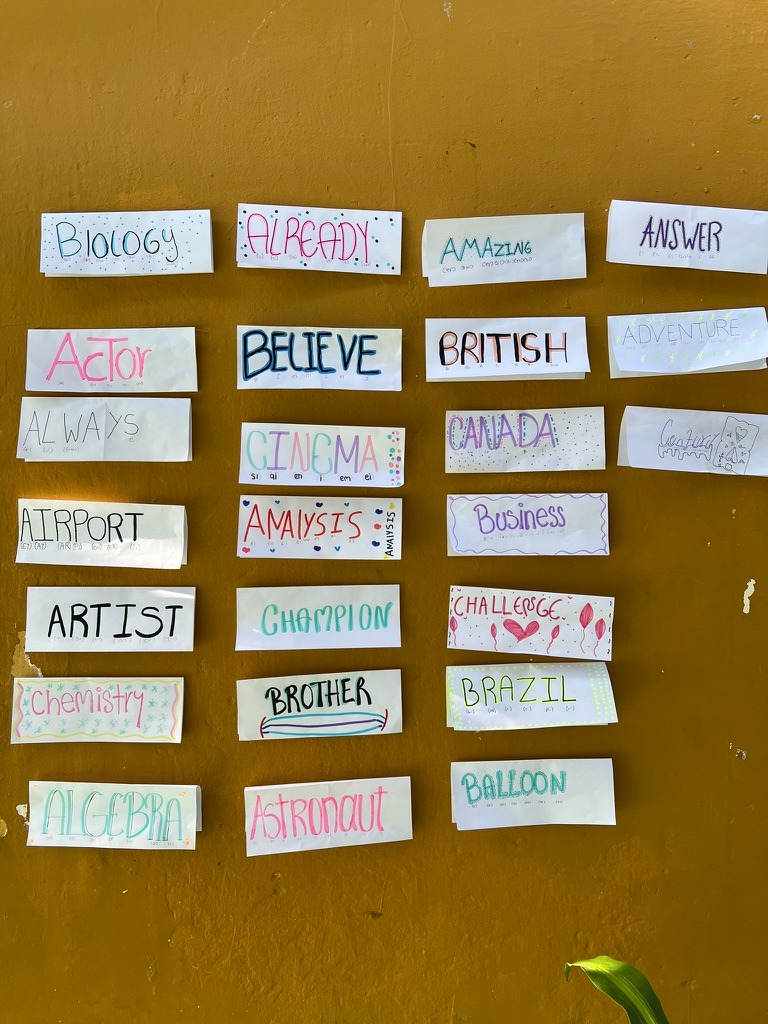 BIOLOGY
ALREADY
AMAZING
ANSWER
ACTOr
BELIEVE
BRITISH
ADVENTURE
ALWAYS
CINEMA
si ai en i em ei
CANADA
Century
AIRPORT
ANALYSIS
ANALYSIS
Business
ARTIST
CHAMPION
CHALLENGE
Chemistry
BROTHER
BRAZIL
ALGEBRA
AStRONAUT
BALLOON